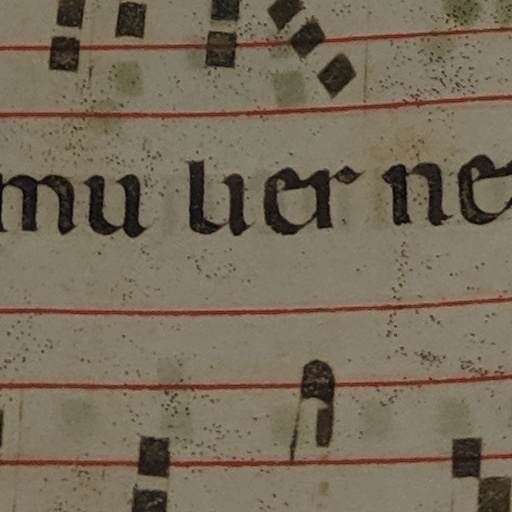 mu lier ne